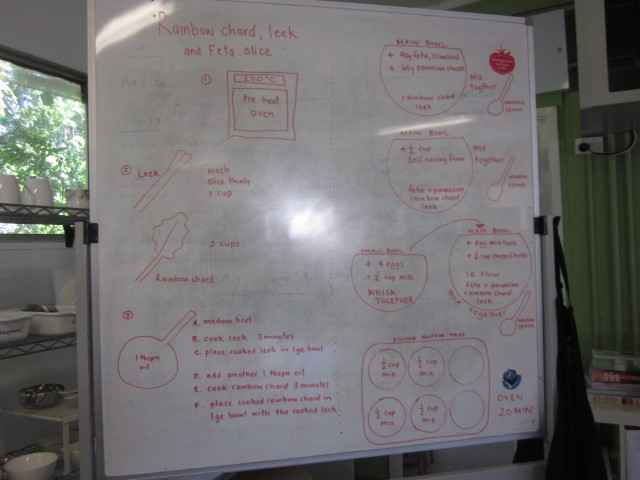 Rainbow chard, leek
and Feta slice
1
200°C
Pre heat
oven
2
Leek
wash
slice thinly
1 cup
2 cups
Rainbow chard
3
1 tbspn
oil
A. medium heat
B. cook leek 3 minutes
C. place cooked leek in lge bowl
D. add another 1 tbspn oil
E. cook rainbow chard 3 minutes
F. place cooked rainbow chard in
lge bowl with the cooked leek
MAIN BOWL
feta, crumbled
parmesan cheese
rainbow chard
leek
MIX
together
wooden
spoon
MAIN BOWL
+ 1/2 cup
Self raising flour
feta + parmesan
rainbow chard
leek
MIX
together
wooden
spoon
SMALL BOWL
+ 4 eggs
cup milk
WHISK
TOGETHER
MAIN BOWL
+ egg mixture
SR Flour
feta + parmesan
rainbow chard
leek
MIX together
wooden
spoon
MUFFIN TRAY
1/2 cup
mix
1/2 cup
mix
1/2 cup
mix
1/2 cup
mix
OVEN
20 MIN